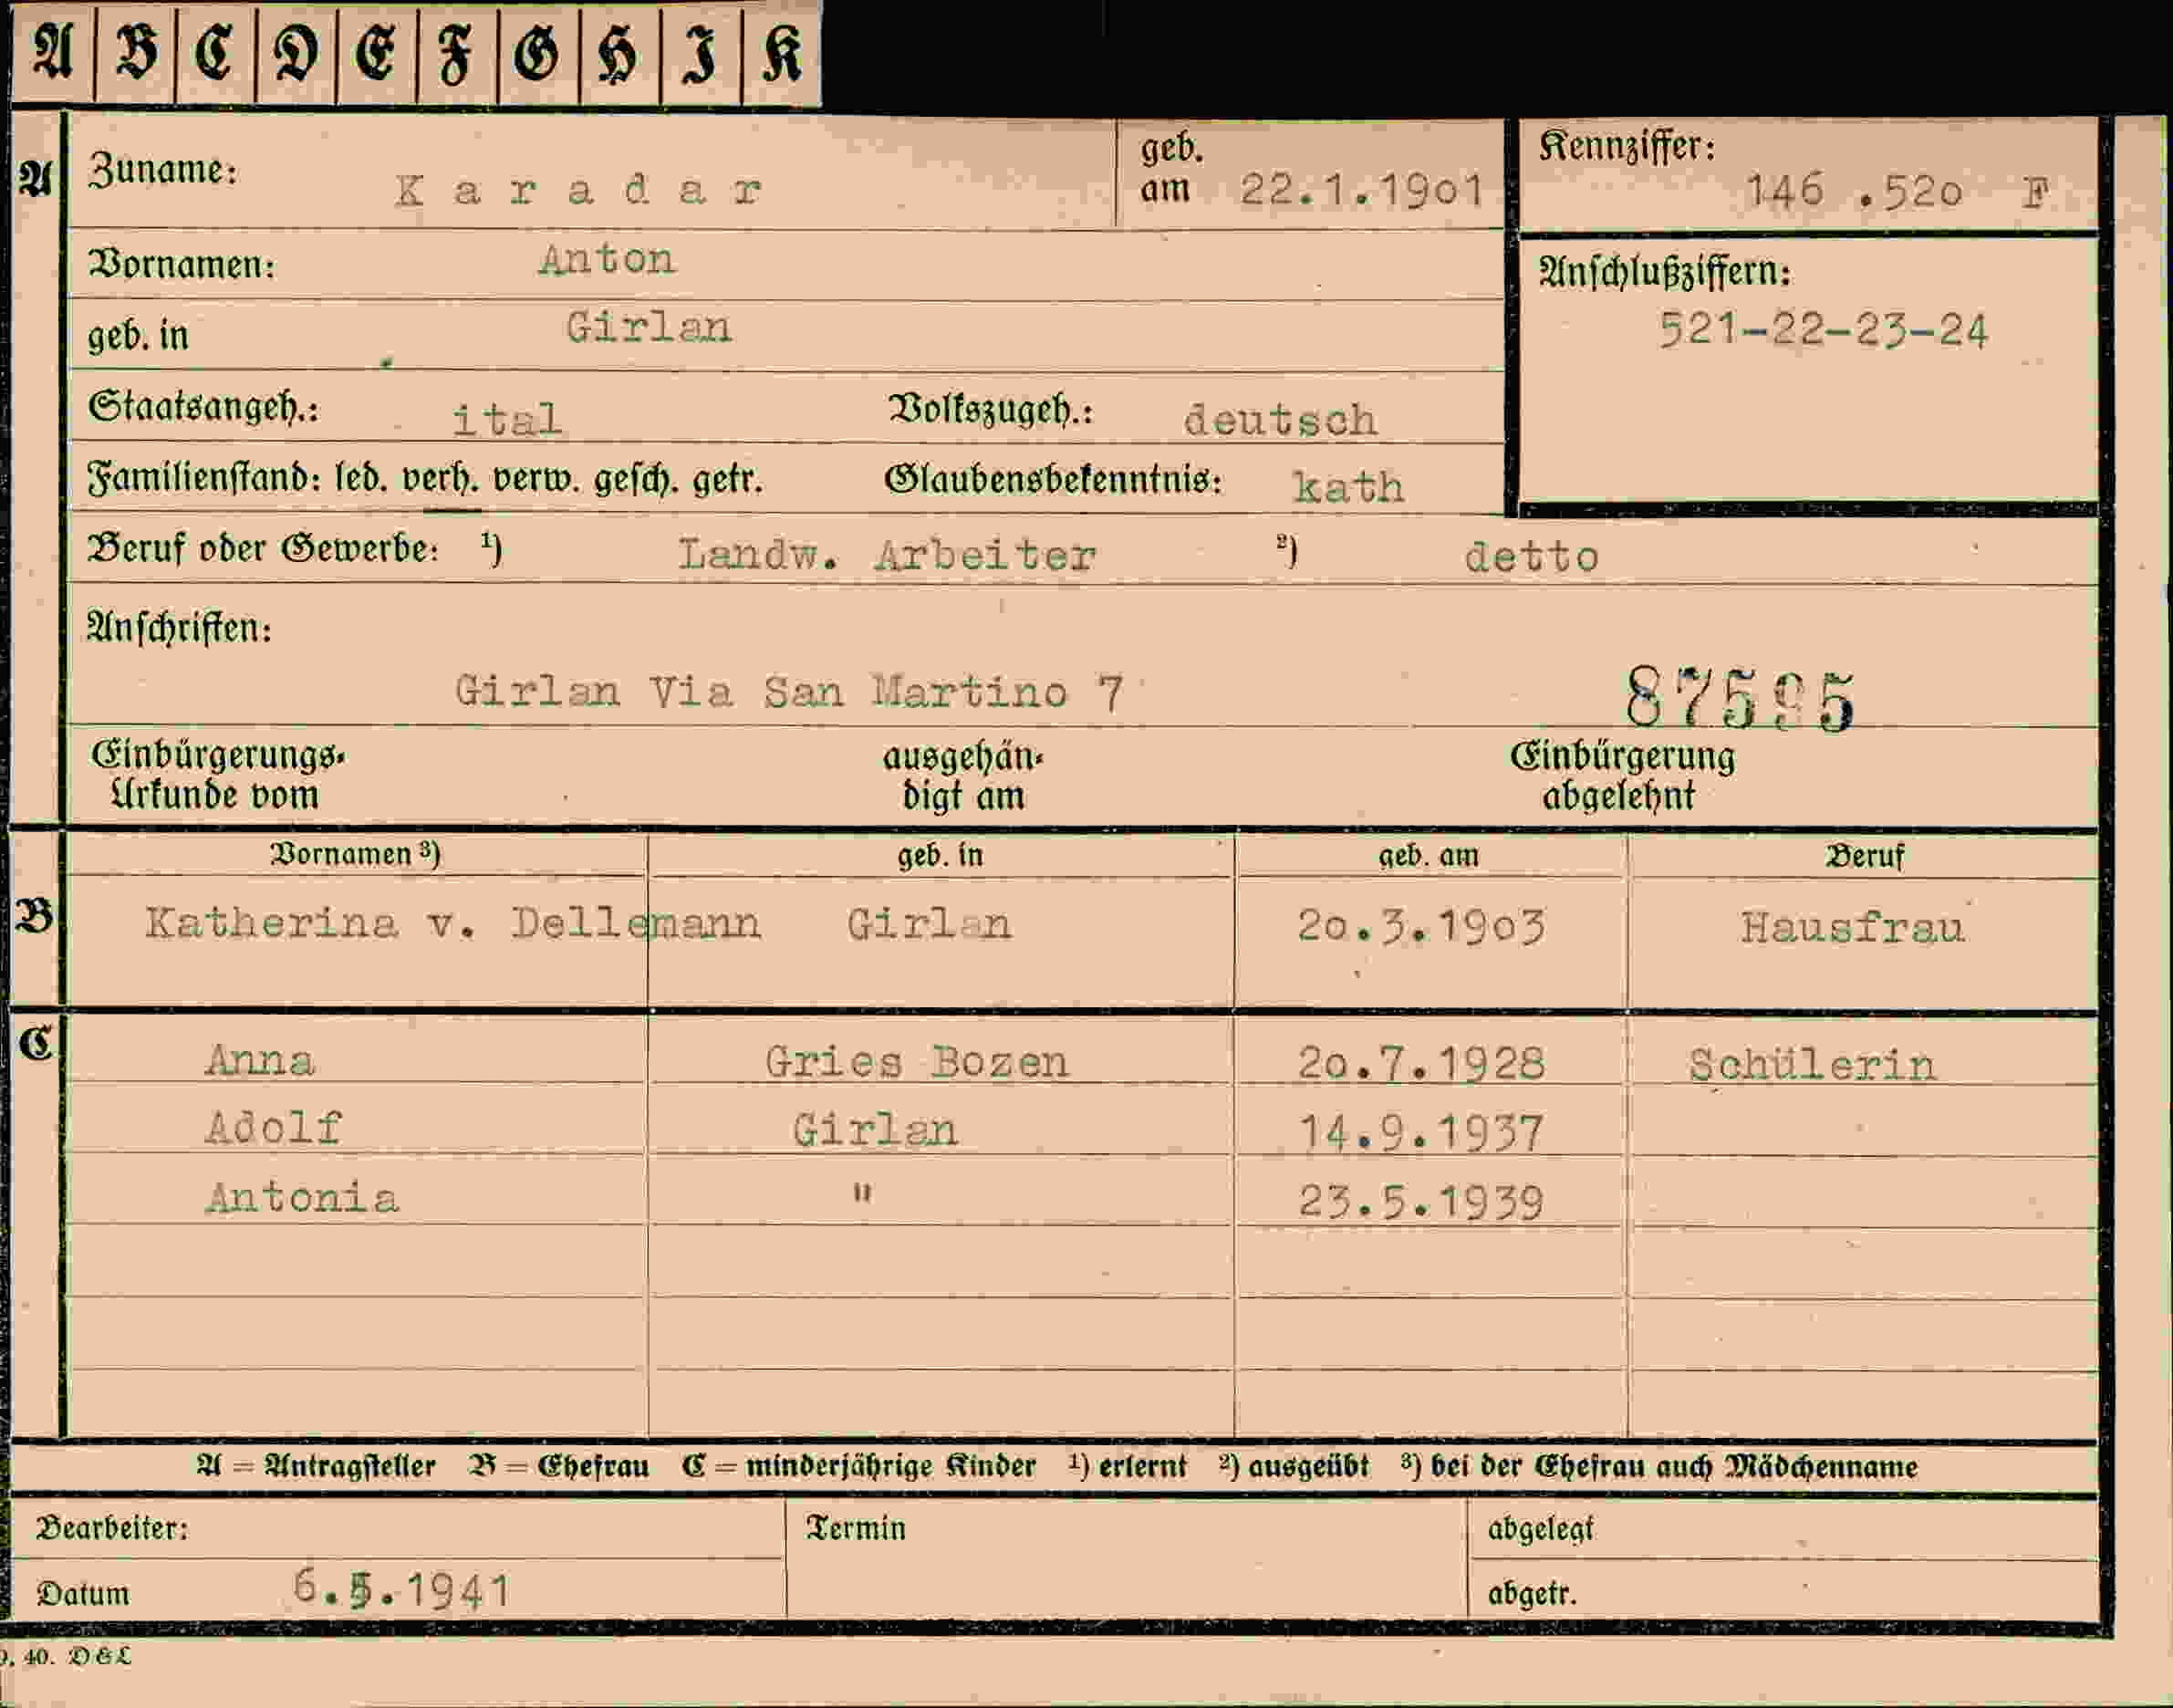 A B C D E F G H I K
A Zuname: Karadar geb. am 22.1.19o1 Kennziffer: 146 .52o F
Vornamen: Anton Anschlußziffern:
geb. in Girlan 521-22-23-24
Staatsangeh.: ital Volkszugeh.: deutsch
Familienstand: led. verh. verw. gesch. getr. Glaubensbekenntnis: kath
Beruf oder Gewerbe: ¹) Landw. Arbeiter ²) detto
Anschriften:
Girlan Via San Martino 7 87595
Einbürgerungs- ausgehän- Einbürgerung
Urkunde vom digt am abgelehnt
Vornamen ³) geb. in geb. am Beruf
B Katherina v. Dellemann Girlan 2o.3.19o3 Hausfrau
C Anna Gries Bozen 2o.7.1928 Schülerin
Adolf Girlan 14.9.1937
Antonia " 23.5.1939
A = Antragsteller B = Ehefrau C = minderjährige Kinder ¹) erlernt ²) ausgeübt ³) bei der Ehefrau auch Mädchenname
Bearbeiter: Termin abgelegt
Datum 6.5.1941 abgetr.
40. D&L